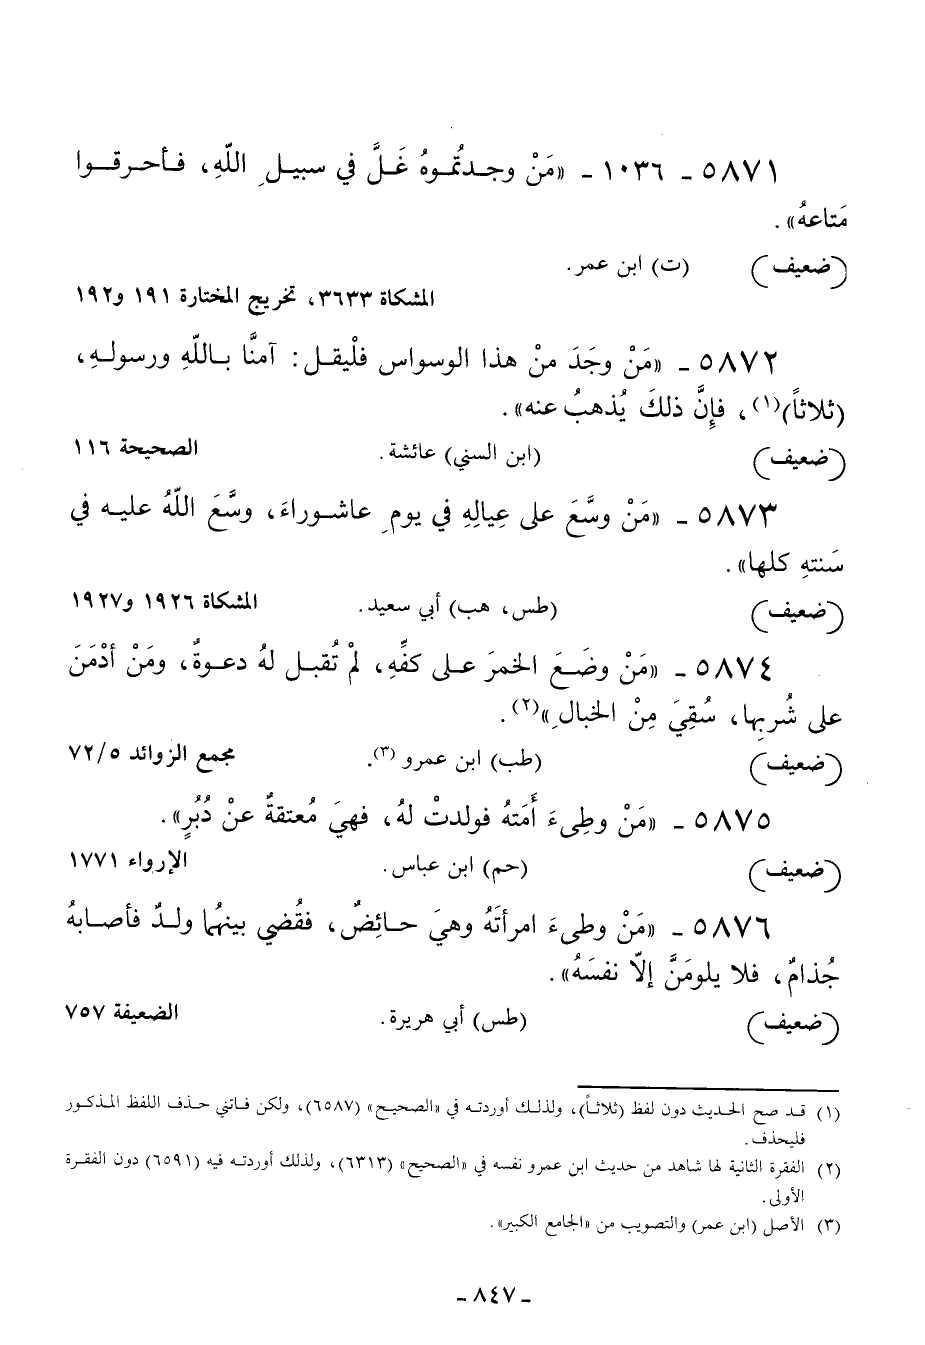 ٥٨٧١ ـ ١٠٣٦ ـ «مَنْ وجـدتُمـوهُ غَـلَّ في سبيـلِ اللّهِ، فـأحـرقـوا
مَتاعهُ».
(ضعيف) (ت) ابن عمر.
المشكاة ٣٦٣٣، تخريج المختارة ١٩١ و١٩٢
٥٨٧٢ ـ «مَنْ وجَدَ منْ هذا الوسواس فلْيقـل: آمنَّا بـاللّهِ ورسولـهِ،
(ثلاثاً)(١)، فإِنَّ ذلكَ يُذهبُ عنه».
(ضعيف) (ابن السني) عائشة. الصحيحة ١١٦
٥٨٧٣ ـ «مَنْ وسَّعَ على عِيالِهِ في يومِ عاشـوراءَ، وسَّعَ اللّهُ عليـه في
سَنتهِ كلها».
(ضعيف) (طس، هب) أبي سعيد. المشكاة ١٩٢٦ و١٩٢٧
٥٨٧٤ ـ «مَنْ وضَـعَ الخمرَ عـلى كفِّهِ، لمْ تُقبـل لهُ دعـوةٌ، ومَنْ أدْمَنَ
على شُربِها، سُقِيَ مِنْ الخبالِ»(٢).
(ضعيف) (طب) ابن عمرو (٣). مجمع الزوائد ٧٢/٥
٥٨٧٥ ـ «مَنْ وطِىءَ أَمَتهُ فولدتْ لهُ، فهيَ مُعتقةٌ عنْ دُبُرٍ».
(ضعيف) (حم) ابن عباس. الإرواء ١٧٧١
٥٨٧٦ ـ «مَنْ وطىءَ امرأتَهُ وهيَ حـائِضٌ، فقُضي بينهُما ولـدٌ فأصـابهُ
جُذامٌ، فلا يلومَنَّ إلّا نفسَهُ».
(ضعيف) (طس) أبي هريرة. الضعيفة ٧٥٧
(١) قـد صح الحـديث دون لفظ (ثلاثـاً)، ولذلـك أوردتـه في «الصحيـح» (٦٥٨٧)، ولكن فـاتني حـذف اللفظ المـذكور
فليحذف.
(٢) الفقرة الثانية لها شاهد من حديث ابن عمرو نفسه في «الصحيح» (٦٣١٣)، ولذلك أوردتـه فيه (٦٥٩١) دون الفقـرة
الأولى.
(٣) الأصل (ابن عمر) والتصويب من «الجامع الكبير».
ـ ٨٤٧ ـ